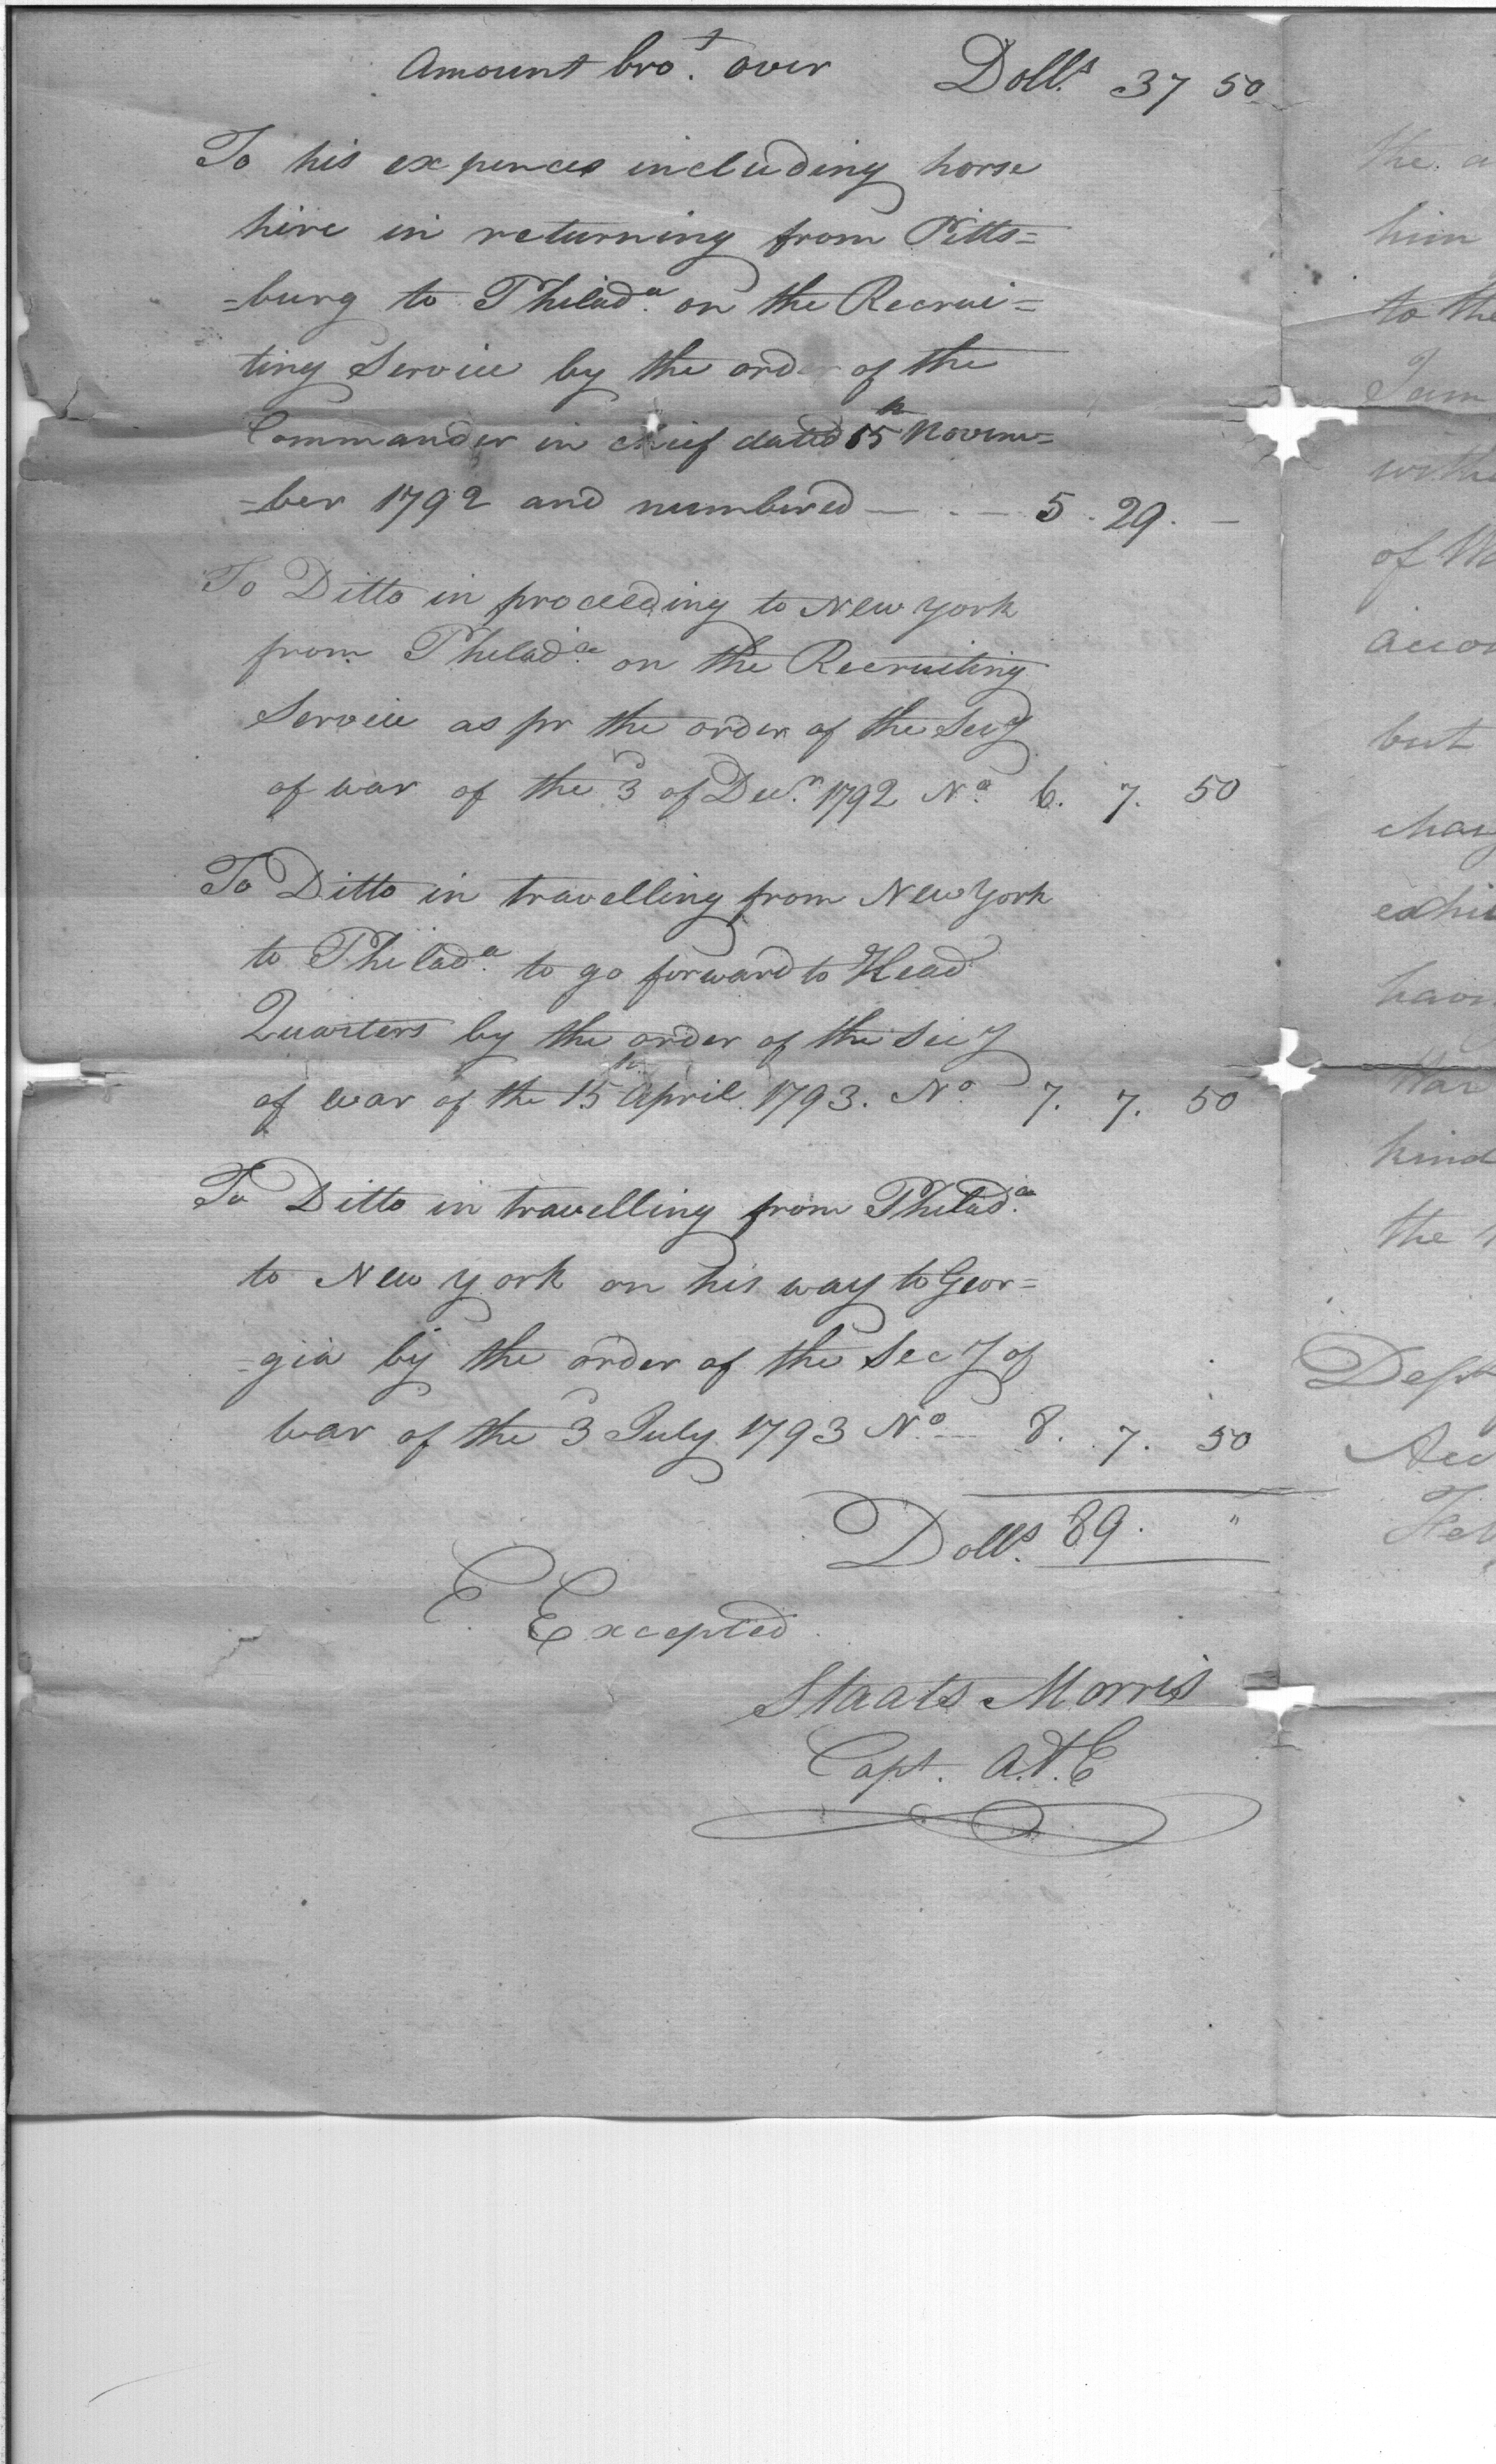 Amount bro.t over Doll.s 37 50
To his expences including horse
hire in returning from Pitts=
=burg to Philad.a on the Recrui=
ting Service by the order of the
Commander in chief dated 15th Novem=
=ber 1792 and numbered — . — 5 . 29. —
To Ditto in proceeding to New York
from Philad.a on the Recruiting
Service as pr the order of the Secy
of war of the 3d of Decr. 1792 No. 6. 7. 50
To Ditto in travelling from New York
to Philad.a to go forward to Head
Quarters by the order of the Secy
of war of the 15th April 1793. No. 7. 7. 50
To Ditto in travelling from Philad.a
to New York on his way to Geor=
=gia by the order of the Secy of
war of the 3d July 1793 No. 8. 7. 50
Dolls. 89. "
E Excepted
Staats Morris
Capt. A.&E
the a
him
to the
I am
of Wa
accou
but
charg
exhi
havi
War
kind
the
Dept